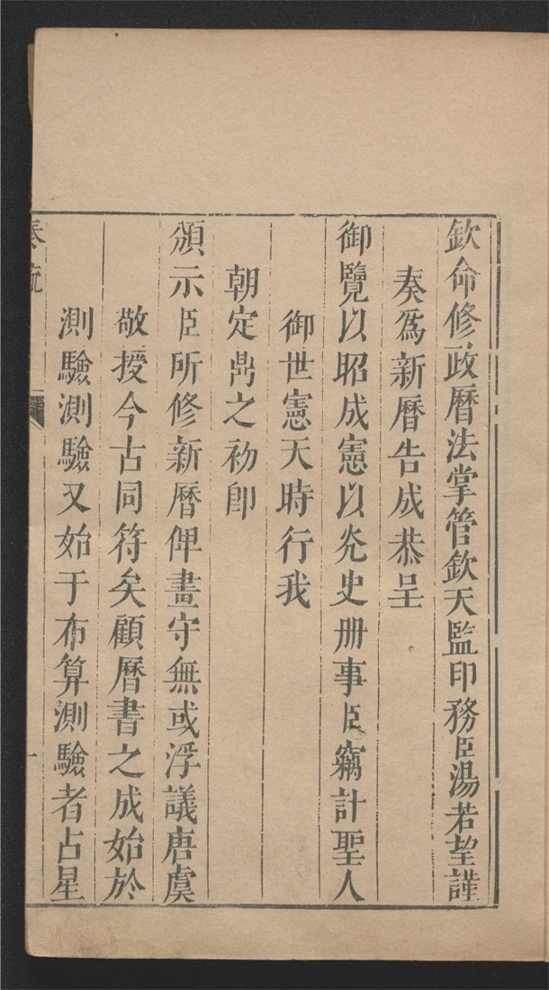 欽命修政曆法掌管欽天監印務臣湯若望謹
奏爲新曆告成恭呈
御覽以昭成憲以光史册事臣竊計聖人
御世憲天時行我
朝定鼎之初卽
頒示臣所修新曆俾晝守無或浮議唐虞
敬授今古同符矣顧曆書之成始於
測驗測驗又始于布算測驗者占星
奏疏
一